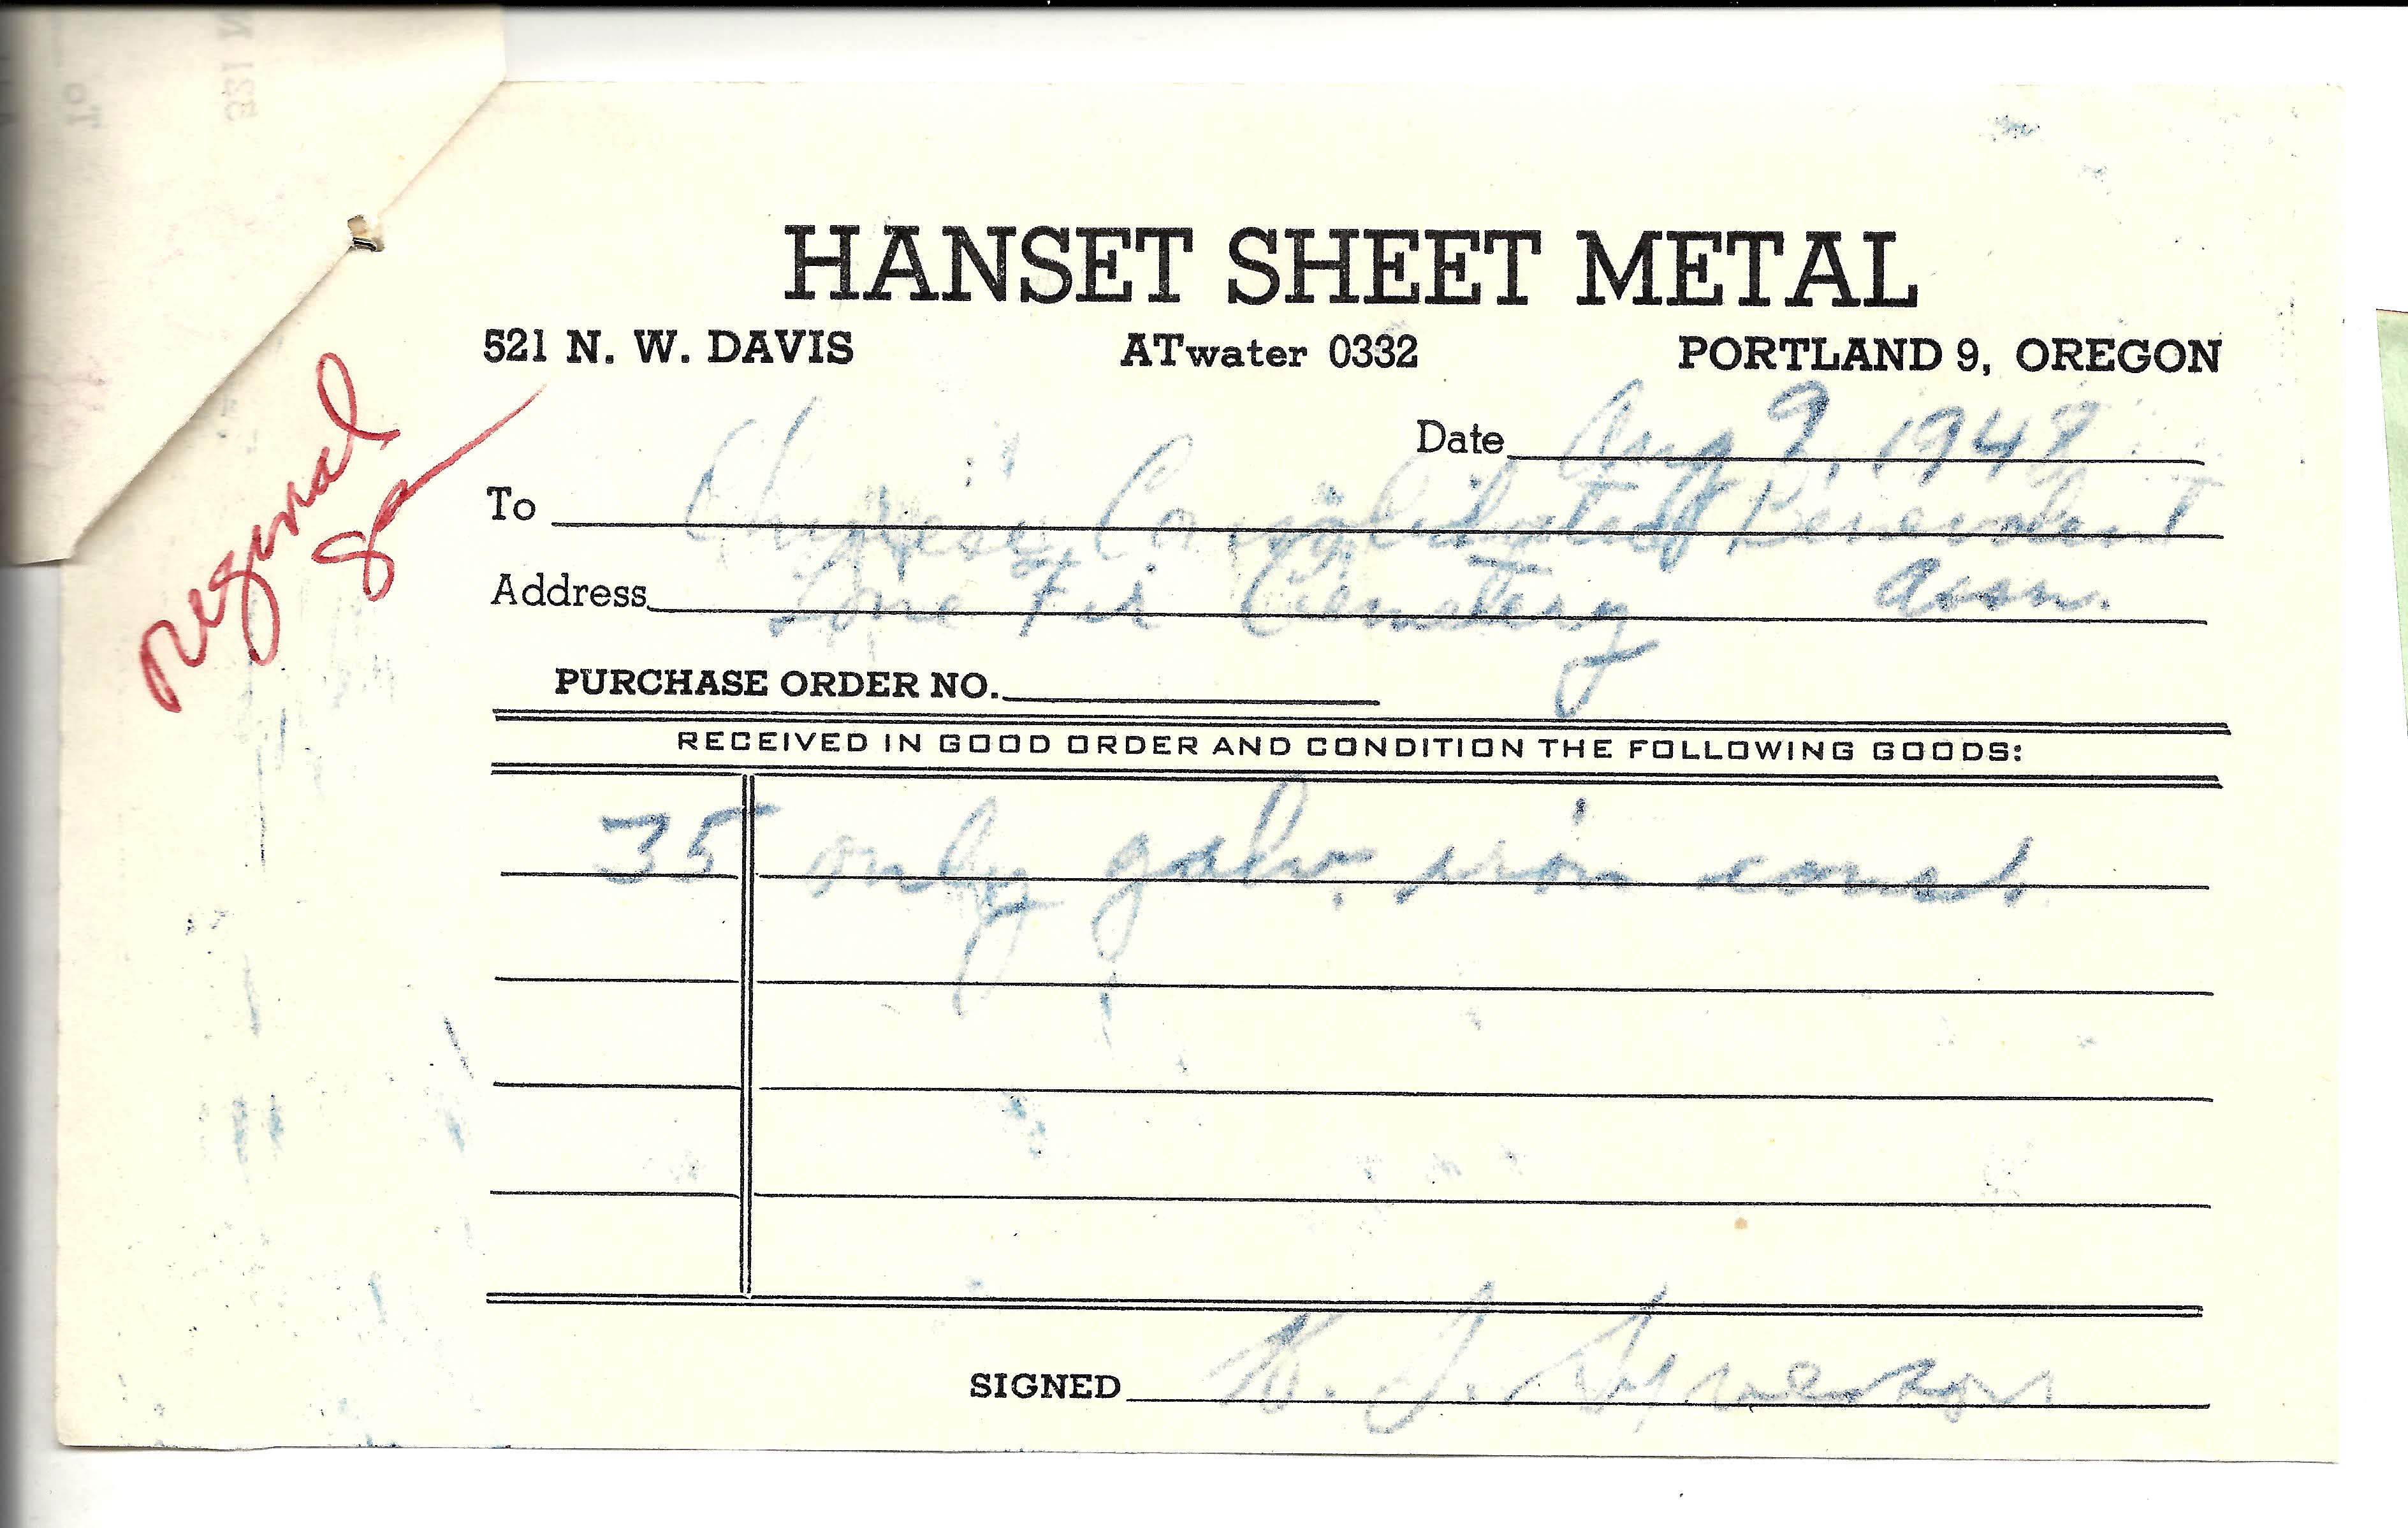 HANSET SHEET METAL
521 N. W. DAVIS ATwater 0332 PORTLAND 9, OREGON
Date Aug 9, 1948
To Chinese Consolidated Benevolent
Address Lone Fir Cemetery Assn.
PURCHASE ORDER NO.
RECEIVED IN GOOD ORDER AND CONDITION THE FOLLOWING GOODS:
35 only galv. iron
SIGNED
To
521 N